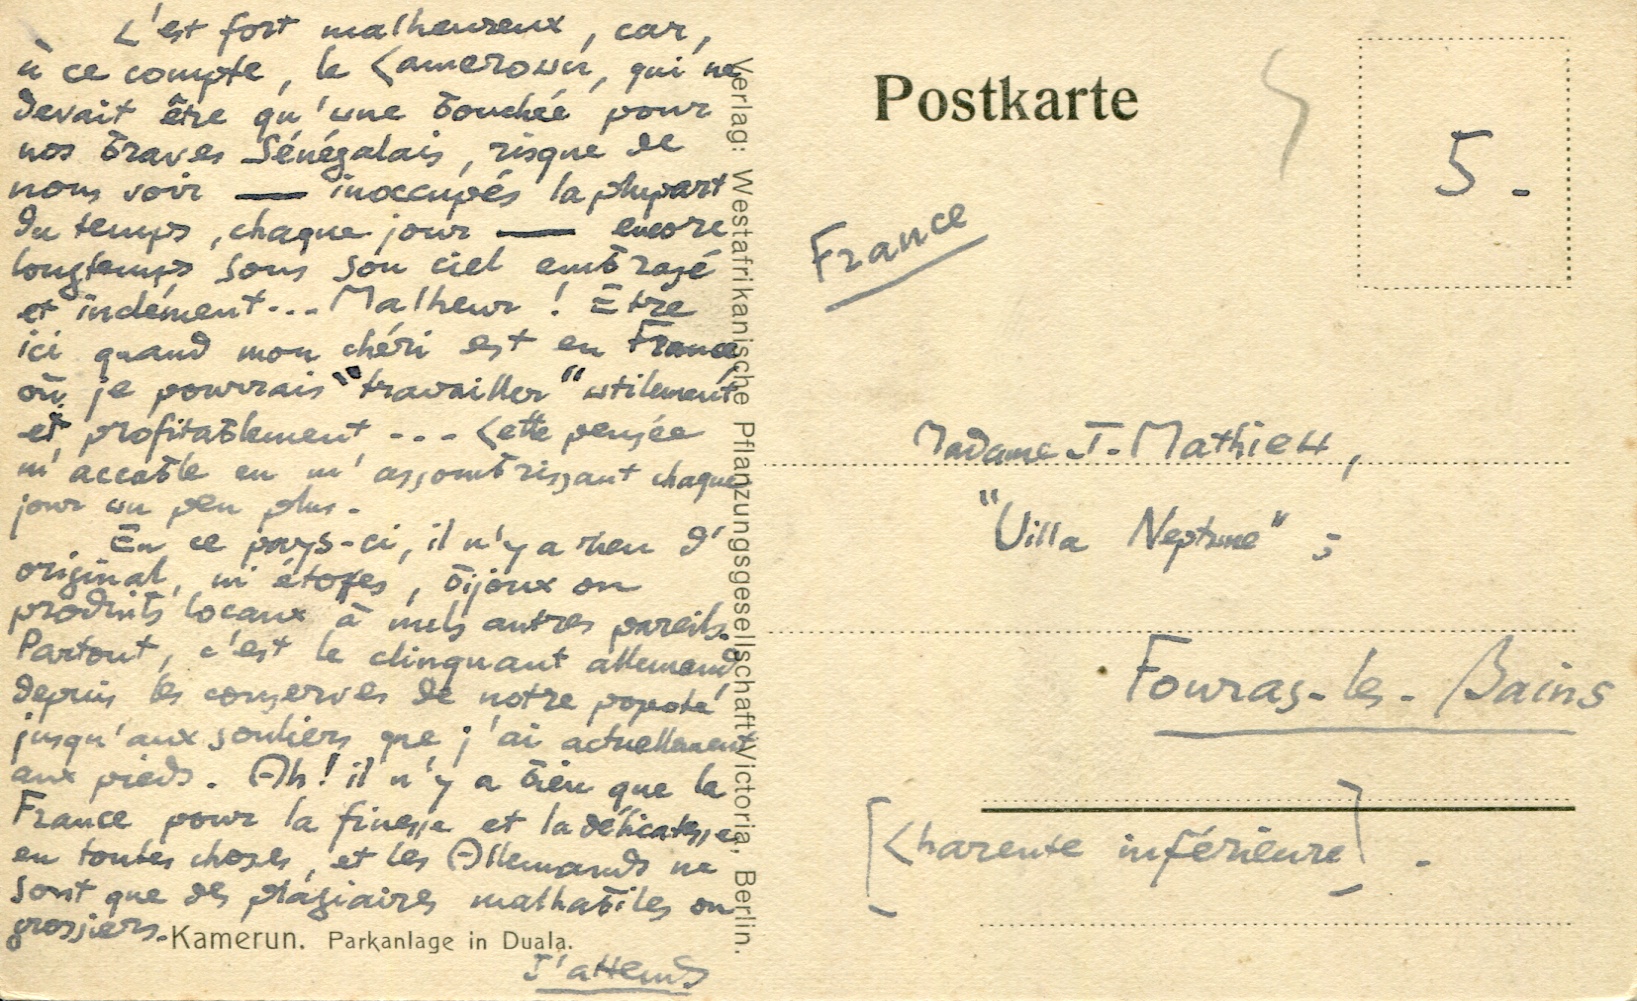 L'est fort malheureux, car,
à ce compte, le Cameroun, qui ne
devait être qu'une bouchée pour
nos braves Sénégalais, risque de
nous voir — inoccupés la plupart
du temps, chaque jour — encore
longtemps sous son ciel embrasé
et inclément... Malheur ! Être
ici quand mon chéri est en France,
où je pourrais "travailler" utilement
et profitablement ... Cette pensée
m'accable en m'assombrissant chaque
jour un peu plus.
En ce pays-ci, il n'y a rien d'
original, ni étoffes, bijoux ou
produits locaux à nuls autres pareils.
Partout, c'est le clinquant allemand,
depuis les conserves de notre popote
jusqu'aux souliers que j'ai actuellement
aux pieds. Ah! il n'y a bien que la
France pour la finesse et la délicatesse
en toutes choses, et les Allemands ne
sont que des plagiaires malhabiles ou
grossiers.
Kamerun. Parkanlage in Duala.
J'attends
Verlag: Westafrikanische Pflanzungsgesellschaft Victoria, Berlin.
Postkarte
5.-
France
Madame J. Mathieu,
"Villa Neptune" ;
Fouras-les-Bains
[Charente inférieure].